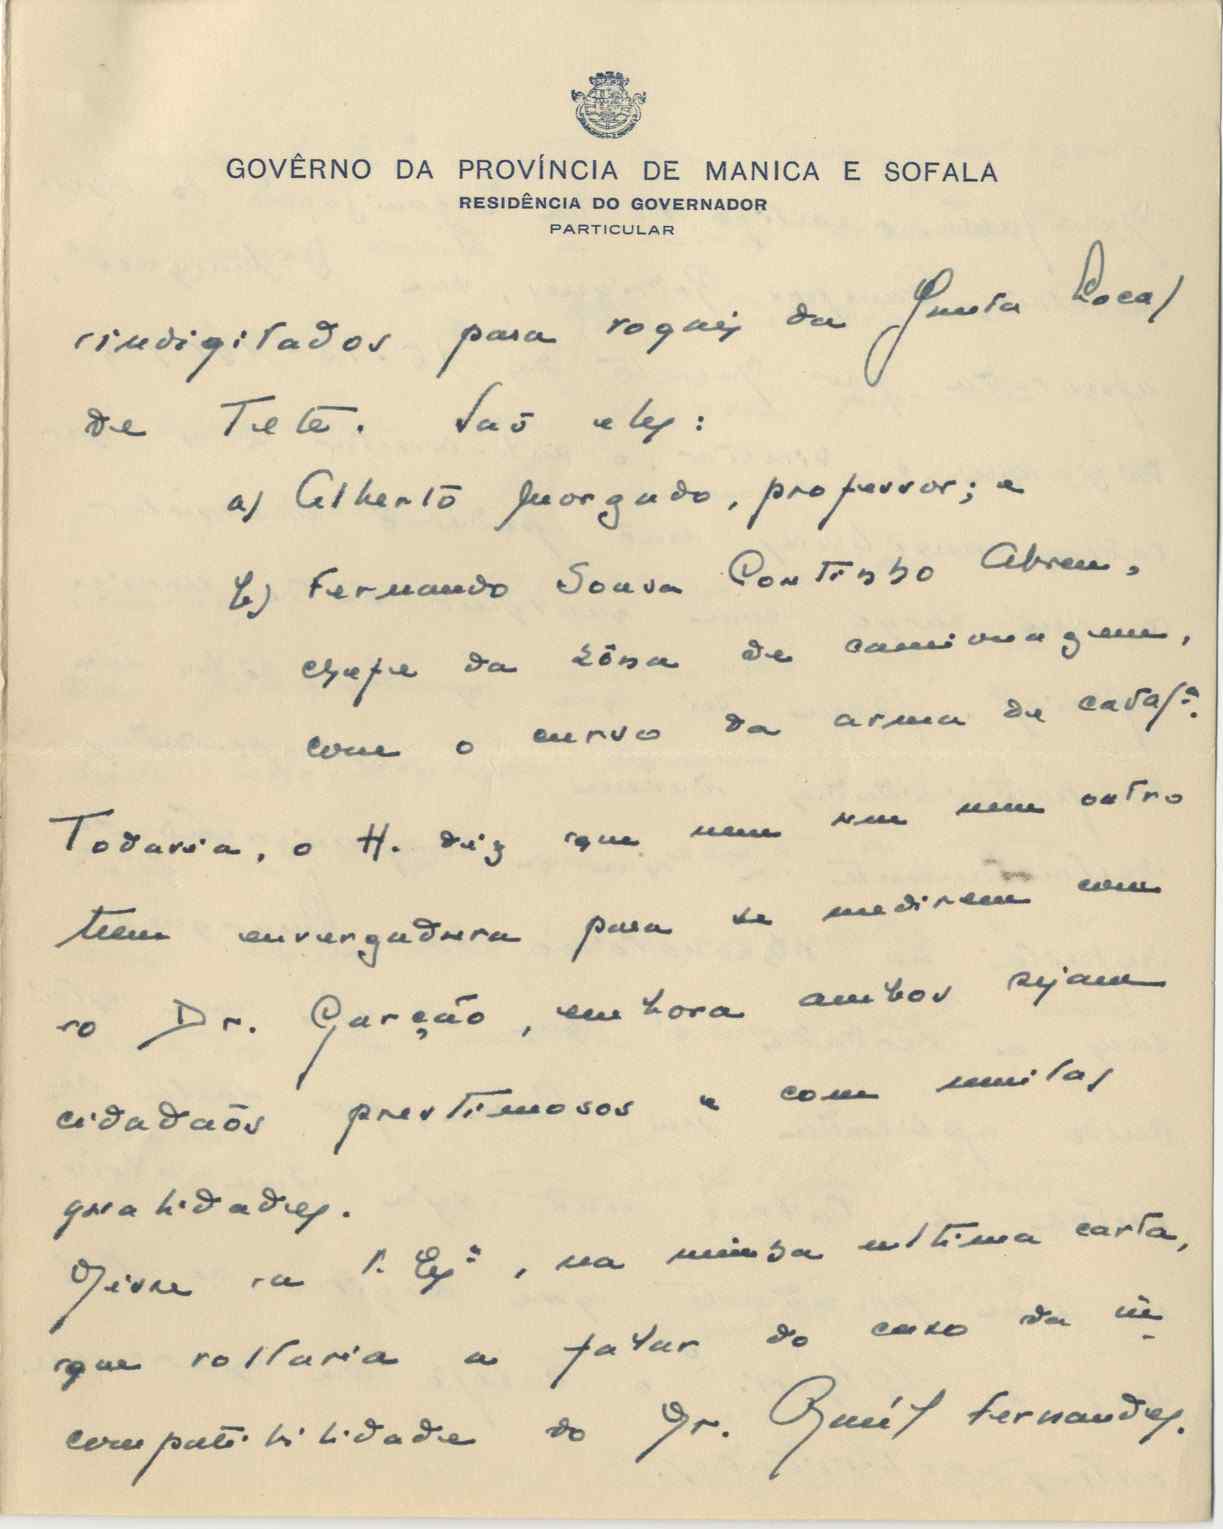 GOVÊRNO DA PROVÍNCIA DE MANICA E SOFALA
RESIDÊNCIA DO GOVERNADOR
PARTICULAR
indigitados para vogais da Junta Local
de Tete. São eles:
a) Alberto Morgado, professor; e
b) Fernando Sousa Continho Abreu,
chefe da zôna de camionagem,
com o curso da arma de cavalª.
Todavia, o H. diz que nem um nem outro
tem envergadura para se medirem com
o Dr. Garção, embora ambos sejam
cidadãos prestimosos e com muitas
qualidades.
Disse a V. Exª, na minha ultima carta,
que voltaria a falar do caso da in-
compatibilidade do Dr. Fernandes.